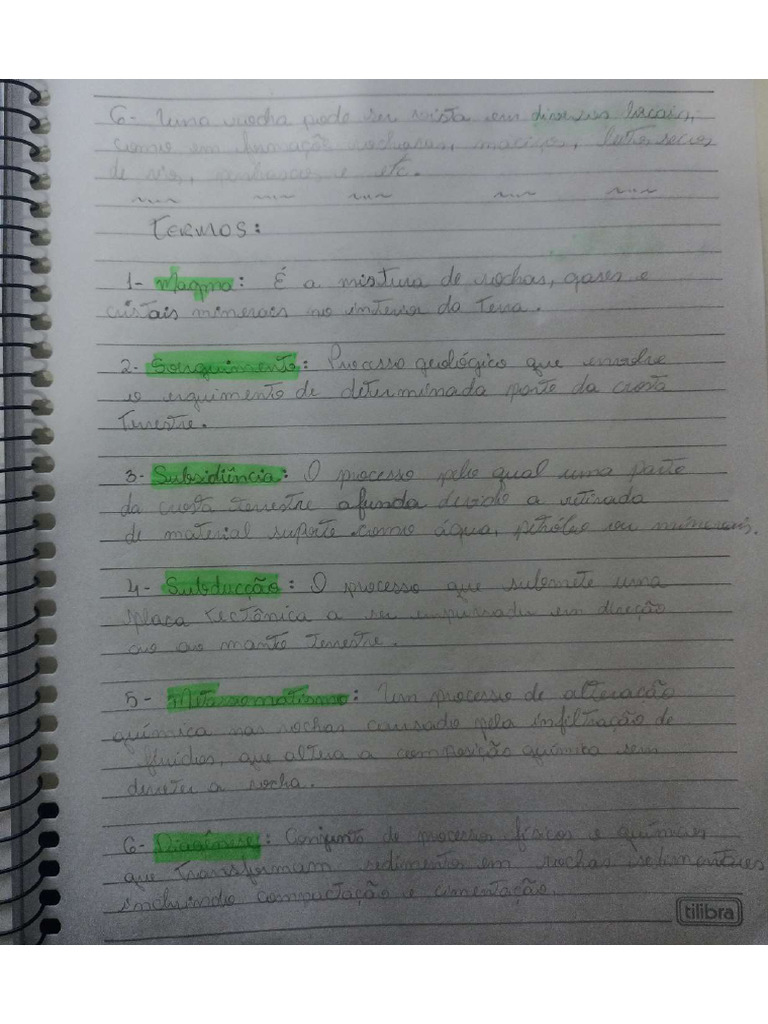 6- Uma rocha pode ser vista em diversos locais,
como em formação rochosas, maciços,
de rio, penhascos e etc.
TERMOS:
1- Magma: É a mistura de rochas, gases e
cristais minerais no interior da Terra.
2- Soerguimento: Processo geológico que envolve
o erguimento de determinada parte da crosta
Terrestre.
3- Subsidência: O processo pelo qual uma parte
da crosta terrestre afunda devido a retirada
de material suporte como água, petróleo ou minerais.
4- Subducção: O processo que submete uma
placa tectônica a ser em direção
ao manto terrestre.
5- Metassomatismo: Um processo de alteração
química nas rochas causado pela infiltração de
fluídos, que altera a composição química sem
derreter a rocha.
6- Diagênese: Conjunto de processos físicos e químicos
que transformam sedimentos em rochas sedimentares
incluindo compactação e cimentação.
tilibra